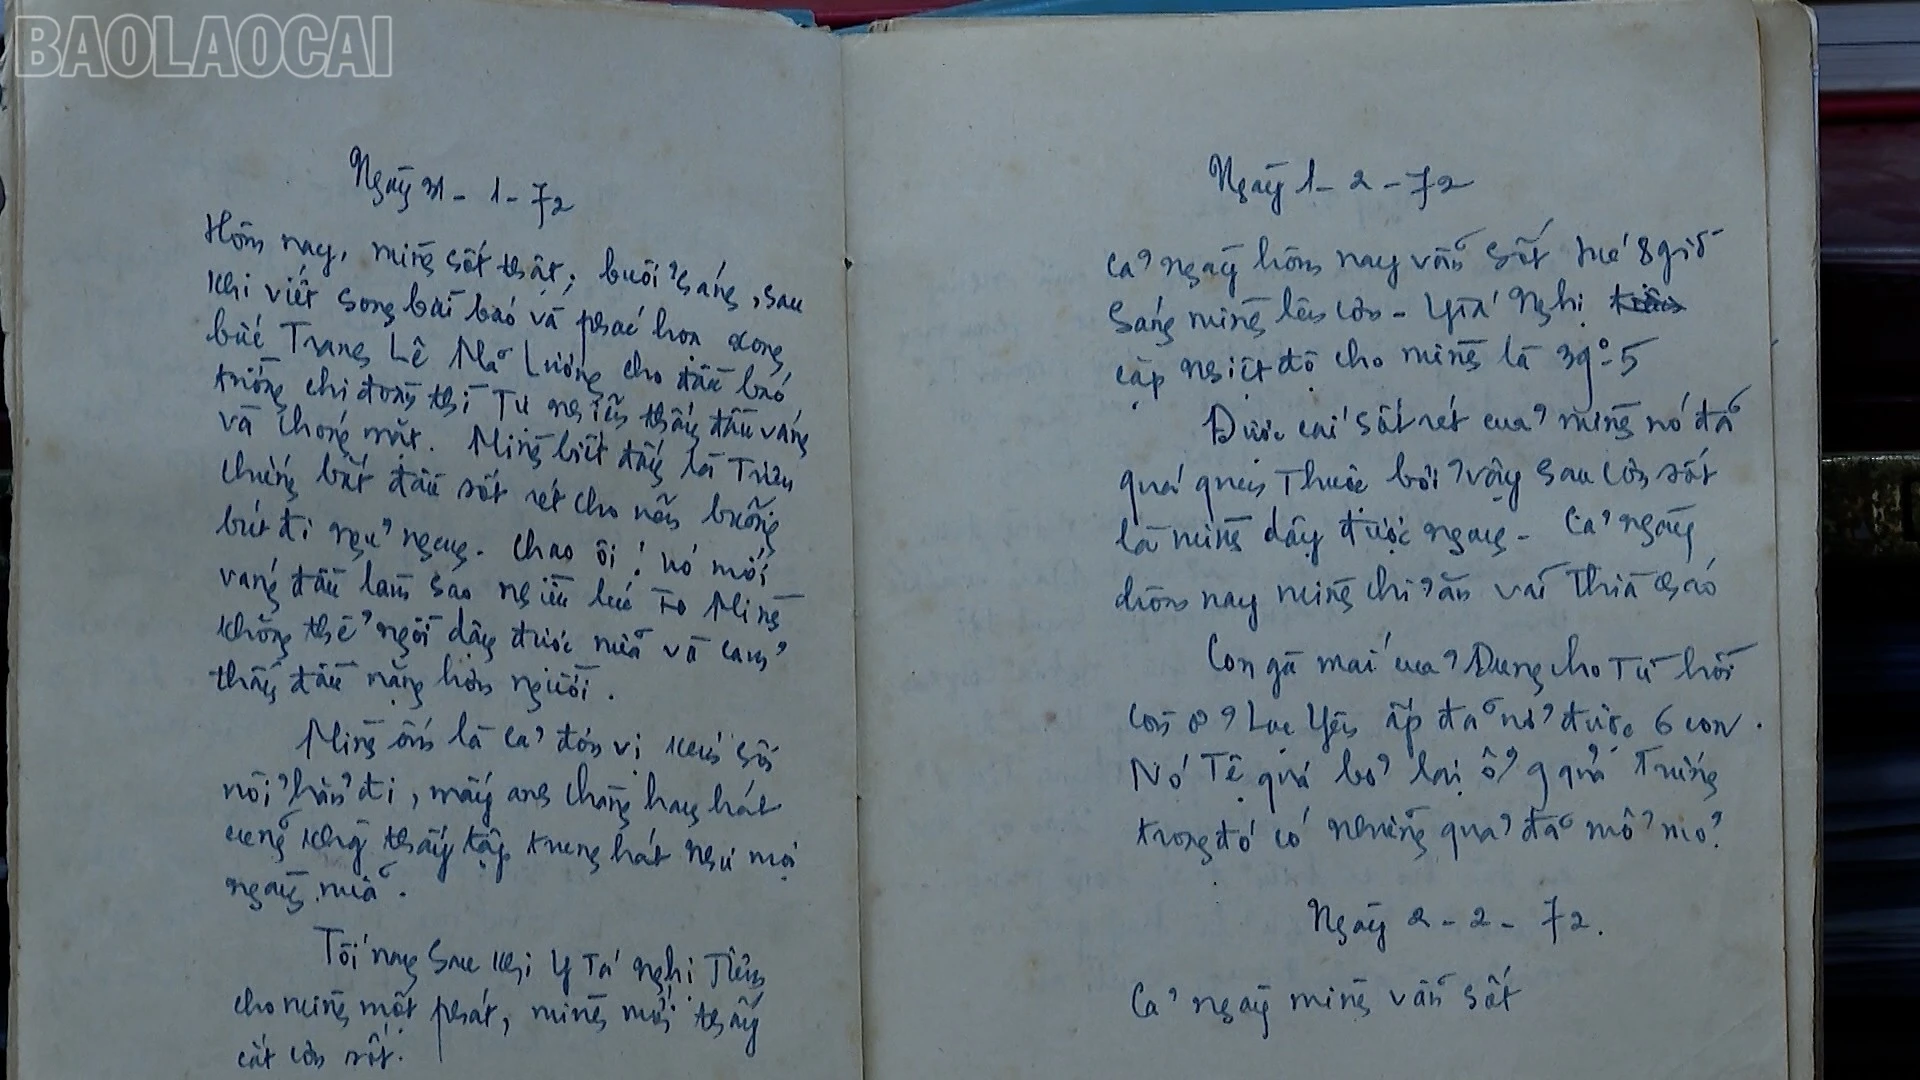 BAOLAOCAI
Ngày 31 - 1 - 72
Hôm nay, mình sốt thật; buổi sáng, sau
khi viết song bài báo và phác họa xong
bức Trang Lê Mã Lương cho đầu báo
tường chi đoàn thì Tự nhiên thấy đầu váng
và chóng mặt. Mình biết đấy là Triệu
chứng bắt đầu sốt rét cho nên buông
bút đi ngủ ngay. Chao ôi! nó mới
váng đầu làm sao nhiều lúc Mình
không thể ngồi dậy được nữa và cảm
thấy đầu nặng hơn người.
Mình ốm là cả đơn vị
hẳn đi, mấy anh chàng hay hát
cũng khg thấy tập trung hát như mọi
ngày nữa.
Tối nay sau khi y Tá Nghị Tiêm
cho mình một phát, mình mới thấy
cắt cơn sốt.
Ngày 1 - 2 - 72
Cả ngày hôm nay vẫn sốt lúc 8 giờ
sáng mình lên cơn - Y Tá Nghị
cặp nhiệt độ cho mình là 39°5
Được cái sốt rét của mình nó đã
quá quen Thuộc bởi vậy sau cơn sốt
là mình dậy được ngay - Cả ngày
hôm nay mình chỉ ăn vài Thìa cháo
Con gà mái của Dung cho Tư hồi
còn ở Lục Yên ấp đã nở được 6 con.
Nó Tệ quá bỏ lại ổ 9 quả Trứng
trong đó có những quả đã mổ mỏ.
Ngày 2 - 2 - 72.
Cả ngày mình vẫn sốt